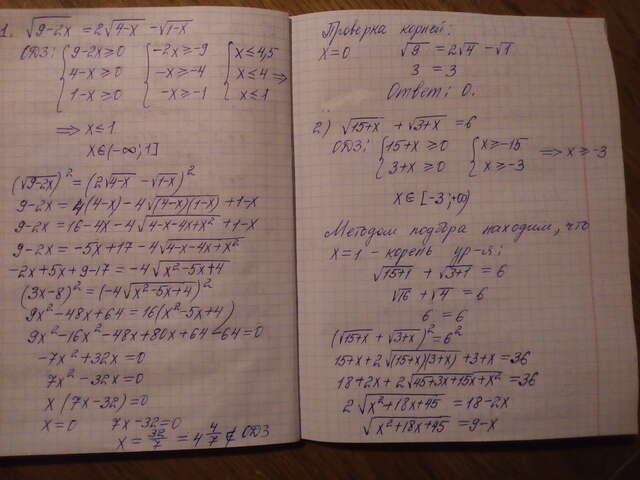 1. √(9-2x) = 2√(4-x) - √(1-x)
ОДЗ: { 9-2x ≥ 0 { -2x ≥ -9 { x ≤ 4,5
4-x ≥ 0 -x ≥ -4 x ≤ 4 ⇒
1-x ≥ 0 -x ≥ -1 x ≤ 1
⇒ x ≤ 1
x ∈ (-∞; 1]
(√(9-2x))² = (2√(4-x) - √(1-x))²
9-2x = 4(4-x) - 4√((4-x)(1-x)) + 1-x
9-2x = 16-4x - 4√(4-x-4x+x²) + 1-x
9-2x = -5x+17 - 4√(4-x-4x+x²)
-2x+5x+9-17 = -4√(x²-5x+4)
(3x-8)² = (-4√(x²-5x+4))²
9x²-48x+64 = 16(x²-5x+4)
9x²-16x²-48x+80x+64-64=0
-7x²+32x=0
7x²-32x=0
x(7x-32)=0
x=0 7x-32=0
x = 32/7 = 4 4/7 ∉ ОДЗ
Проверка корней:
x=0 √9 = 2√4 - √1
3 = 3
Ответ: 0.
2) √(15+x) + √(3+x) = 6
ОДЗ: { 15+x ≥ 0 { x ≥ -15 ⇒ x ≥ -3
3+x ≥ 0 x ≥ -3
x ∈ [-3; ∞)
Методом подбора находим, что
x=1 - корень ур-я:
√(15+1) + √(3+1) = 6
√16 + √4 = 6
6 = 6
(√(15+x) + √(3+x))² = 6²
15+x+2√((15+x)(3+x)) + 3+x = 36
18+2x+2√(45+3x+15x+x²) = 36
2√(x²+18x+45) = 18-2x
√(x²+18x+45) = 9-x